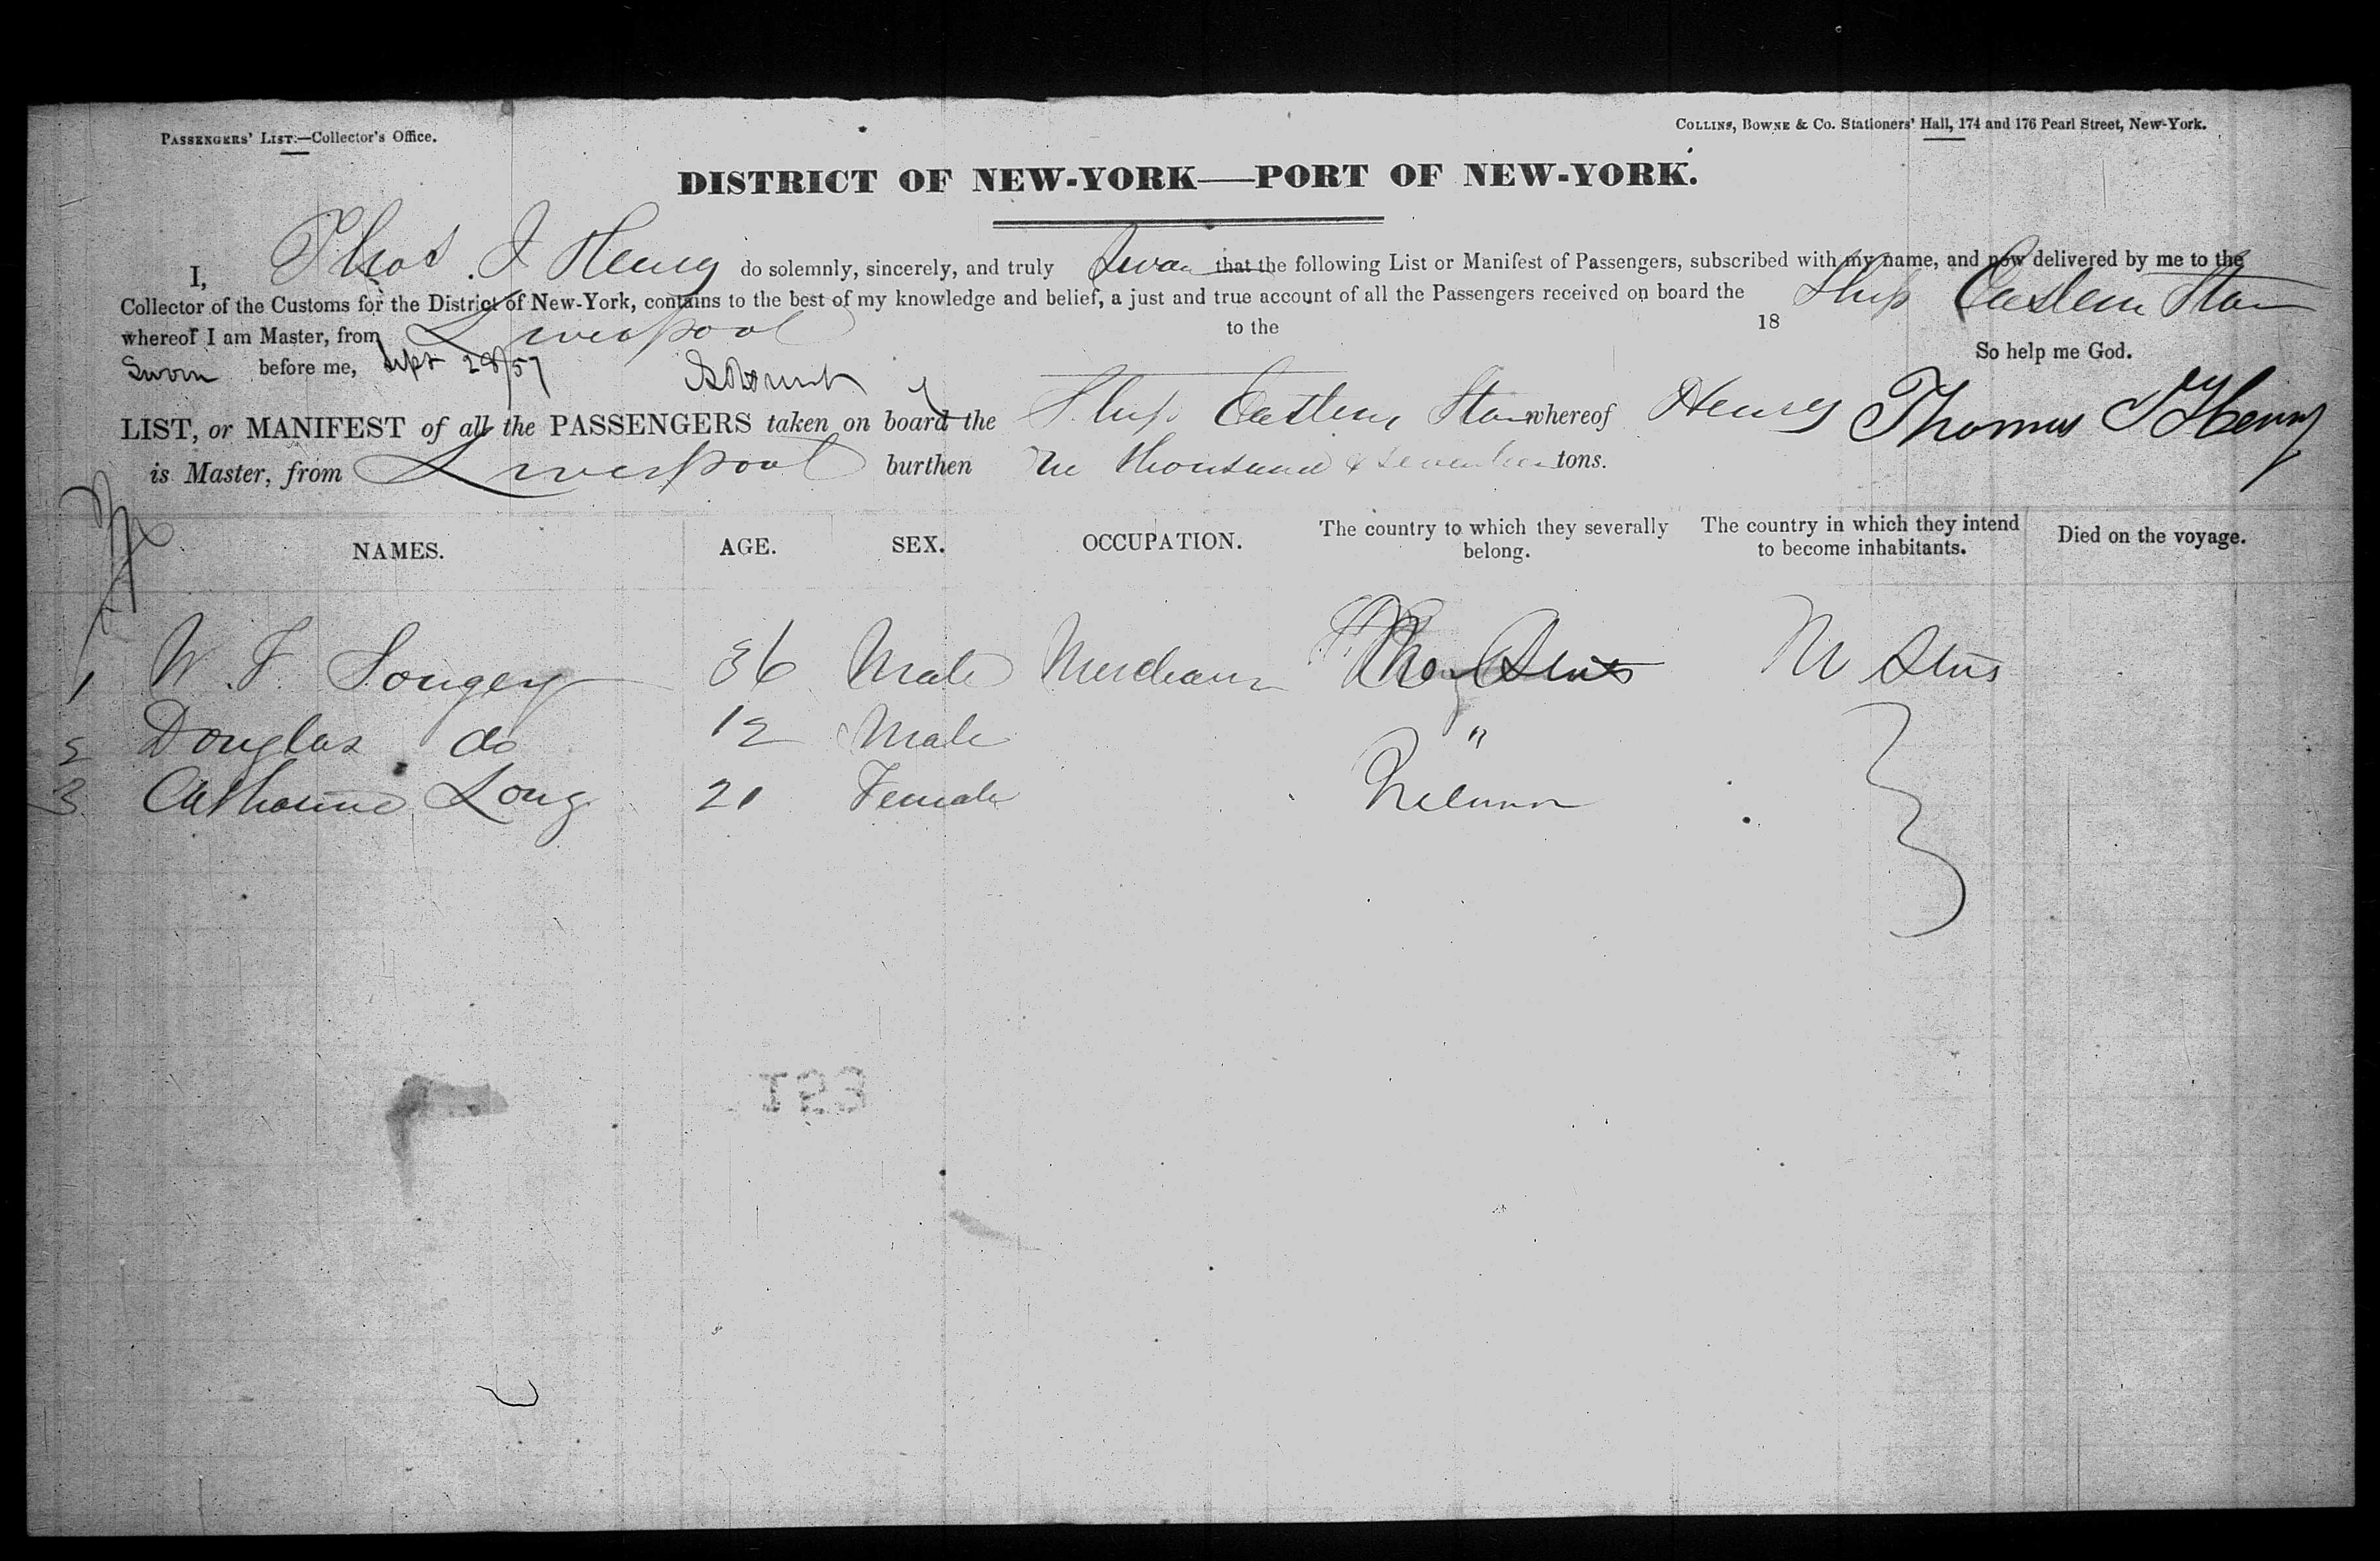 PASSENGERS' LIST.—Collector's Office.
COLLINS, BOWNE & Co. Stationers' Hall, 174 and 176 Pearl Street, New-York.
DISTRICT OF NEW-YORK—PORT OF NEW-YORK.
I, Thos. J Henry do solemnly, sincerely, and truly Swear that the following List or Manifest of Passengers, subscribed with my name, and now delivered by me to the
Collector of the Customs for the District of New-York, contains to the best of my knowledge and belief, a just and true account of all the Passengers received on board the Ship Eastern Star
whereof I am Master, from Liverpool to the 18
So help me God.
Sworn before me, Sept 28/57
LIST, or MANIFEST of all the PASSENGERS taken on board the Ship Eastern Star whereof Henry Thomas J Henry
is Master, from Liverpool burthen One thousand & seventeen tons.
NAMES. AGE. SEX. OCCUPATION. The country to which they severally belong. The country in which they intend to become inhabitants. Died on the voyage.
1 W. F. Sougey 36 Male Merchant U States
2 Douglas do 12 Male "
3 Catharine Long 21 Female Ireland
153